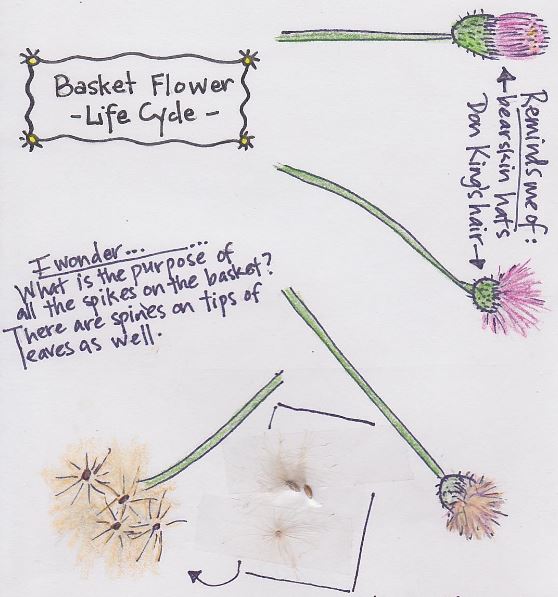 Basket Flower
- Life Cycle -
Reminds me of:
bearskin hats
Don King's hair
I wonder... ...
What is the purpose of
all the spikes on the basket?
There are spines on tips of
leaves as well.